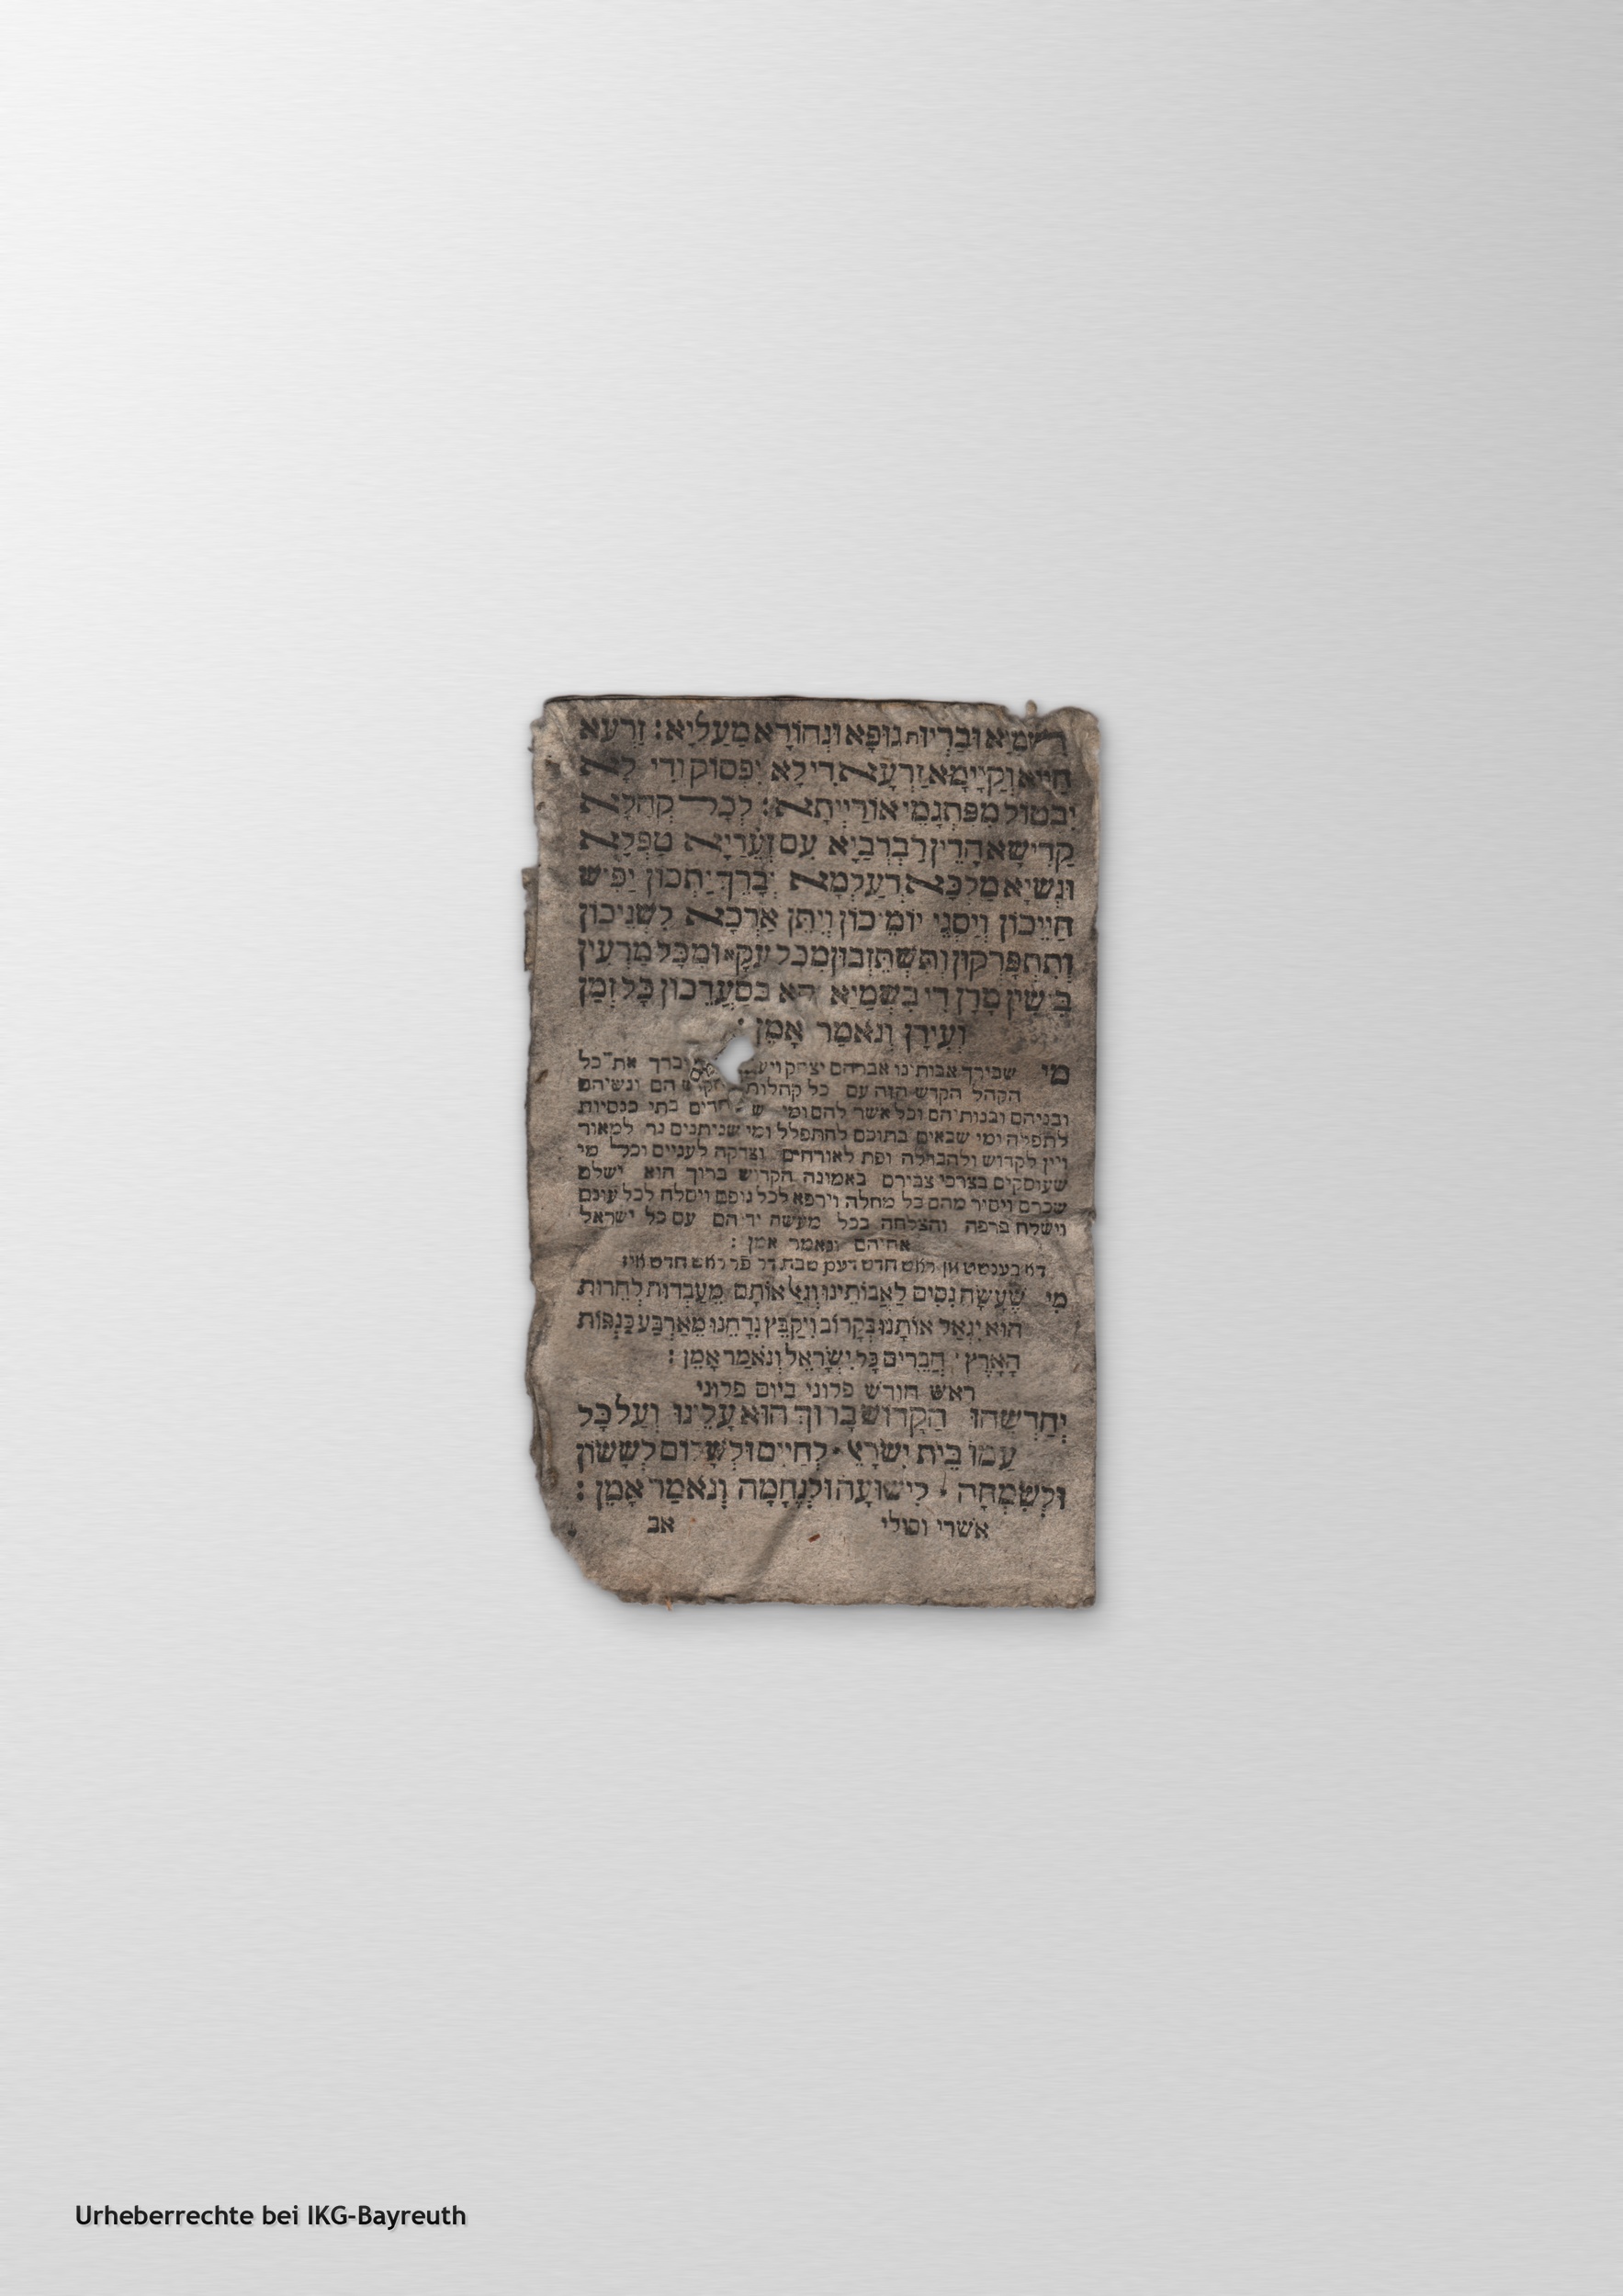 דשמיא ובריות גופא ונהורא מעליא: זרעא
חייא וקיימא זרעא די לא יפסוק ודי לא
יבטול מפתגמי אורייתא: לכל קהלא
קדישא הדין רברביא עם זעריא טפלא
ונשיא מלכא דעלמא יברך יתכון יפיש
חייכון ויסגי יומיכון ויתן ארכא לשניכון
ותתפרקון ותשתזבון מכל עקא ומכל מרעין
בישין מרן די בשמיא הא בסערכון כל זמן
ועידן ונאמר אמן:
מי שבירך אבותינו אברהם יצחק יברך את כל
הקהל הקדש הזה עם כל קהלות הם ונשיהם
ובניהם ובנותיהם וכל אשר להם ומי בתי כנסיות
לתפלה ומי שבאים בתוכם להתפלל ומי שניתנים נר למאור
ויין לקדוש ולהבדלה ופת לאורחים וצדקה לעניים וכל מי
שעוסקים בצרכי צבירם באמונה הקדוש ברוך הוא ישלם
שכרם ויסיר מהם כל מחלה וירפא לכל גופם ויסלח לכל עונם
וישלח ברכה והצלחה בכל מעשה ידיהם עם כל ישראל
אחיהם ונאמר אמן:
דא בענטשט מן ראש חדש דעם שבת דר פר ראש חדש איז
מי שעשה נסים לאבותינו וגאל אותם מעבדות לחרות
הוא יגאל אותנו בקרוב ויקבץ נדחנו מארבע כנפות
הארץ חברים כל ישראל ונאמר אמן:
ראש חודש פלוני ביום פלוני
יחדשהו הקדוש ברוך הוא עלינו ועל כל
עמו בית ישראל לחיים ולשלום לששון
ולשמחה לישועה ולנחמה ונאמר אמן:
אשרי וסולי אב
Urheberrechte bei IKG-Bayreuth